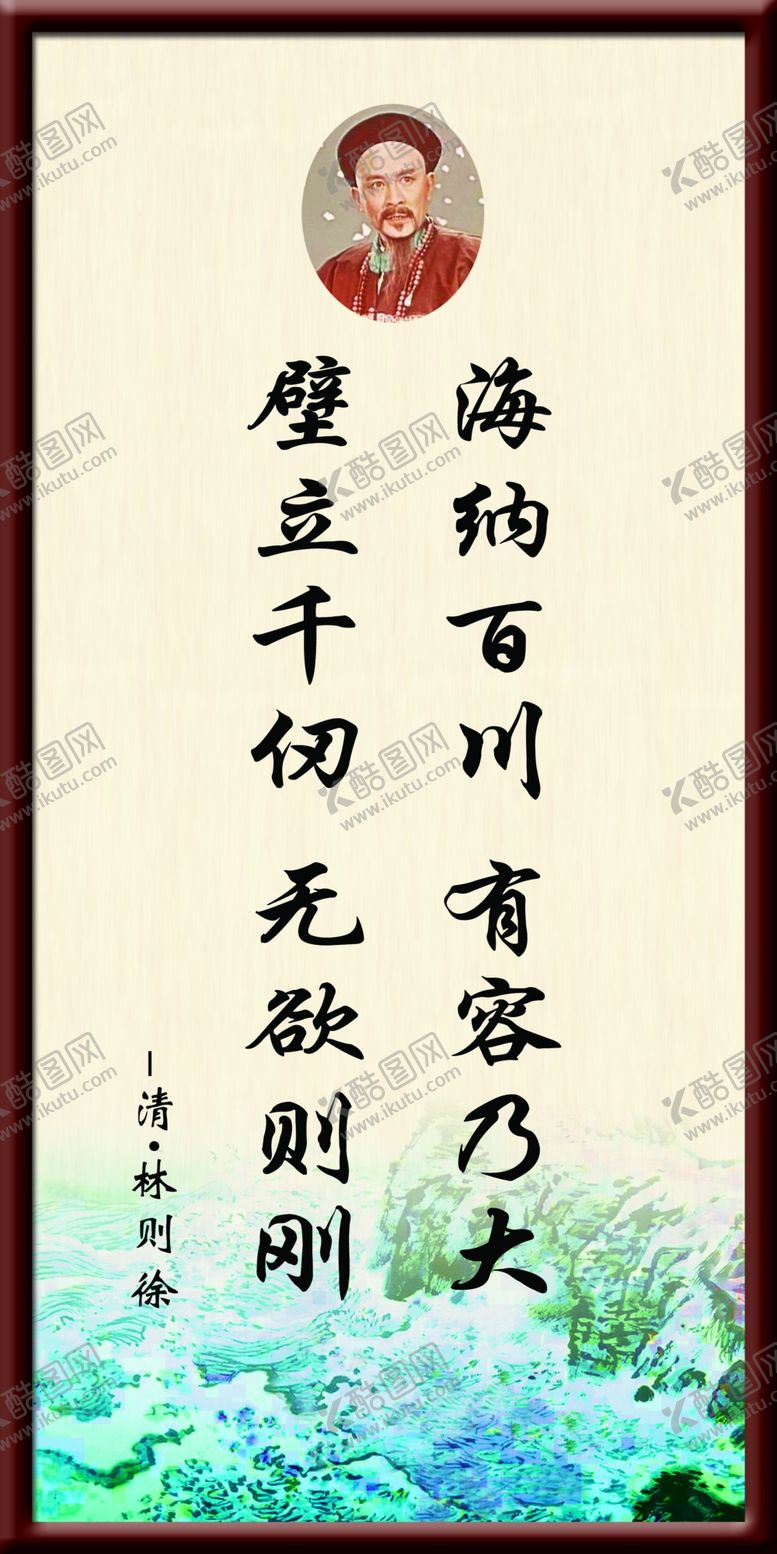 海纳百川 有容乃大
壁立千仞 无欲则刚
－清·林则徐
酷图网
www.ikutu.com